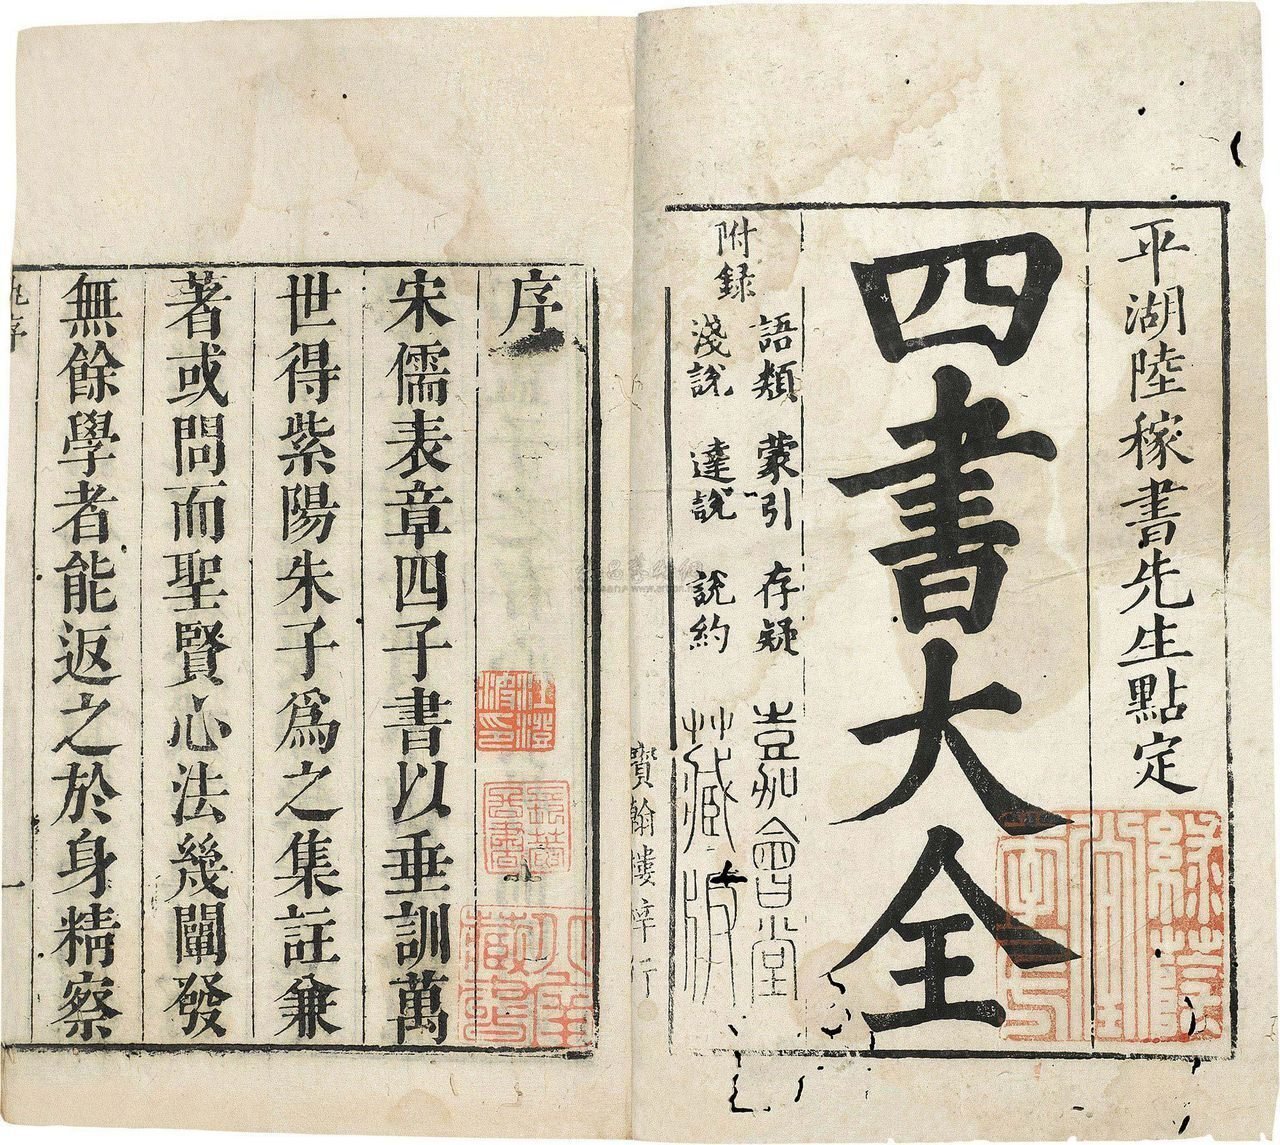 平湖陸稼書先生點定
四書大全
附錄
語類 蒙引 存疑
淺說 達說 說約
嘉會堂
藏板
寶翰樓梓行
序
宋儒表章四子書以垂訓萬
世得紫陽朱子為之集註兼
著或問而聖賢心法幾闡發
無餘學者能返之於身精察
一